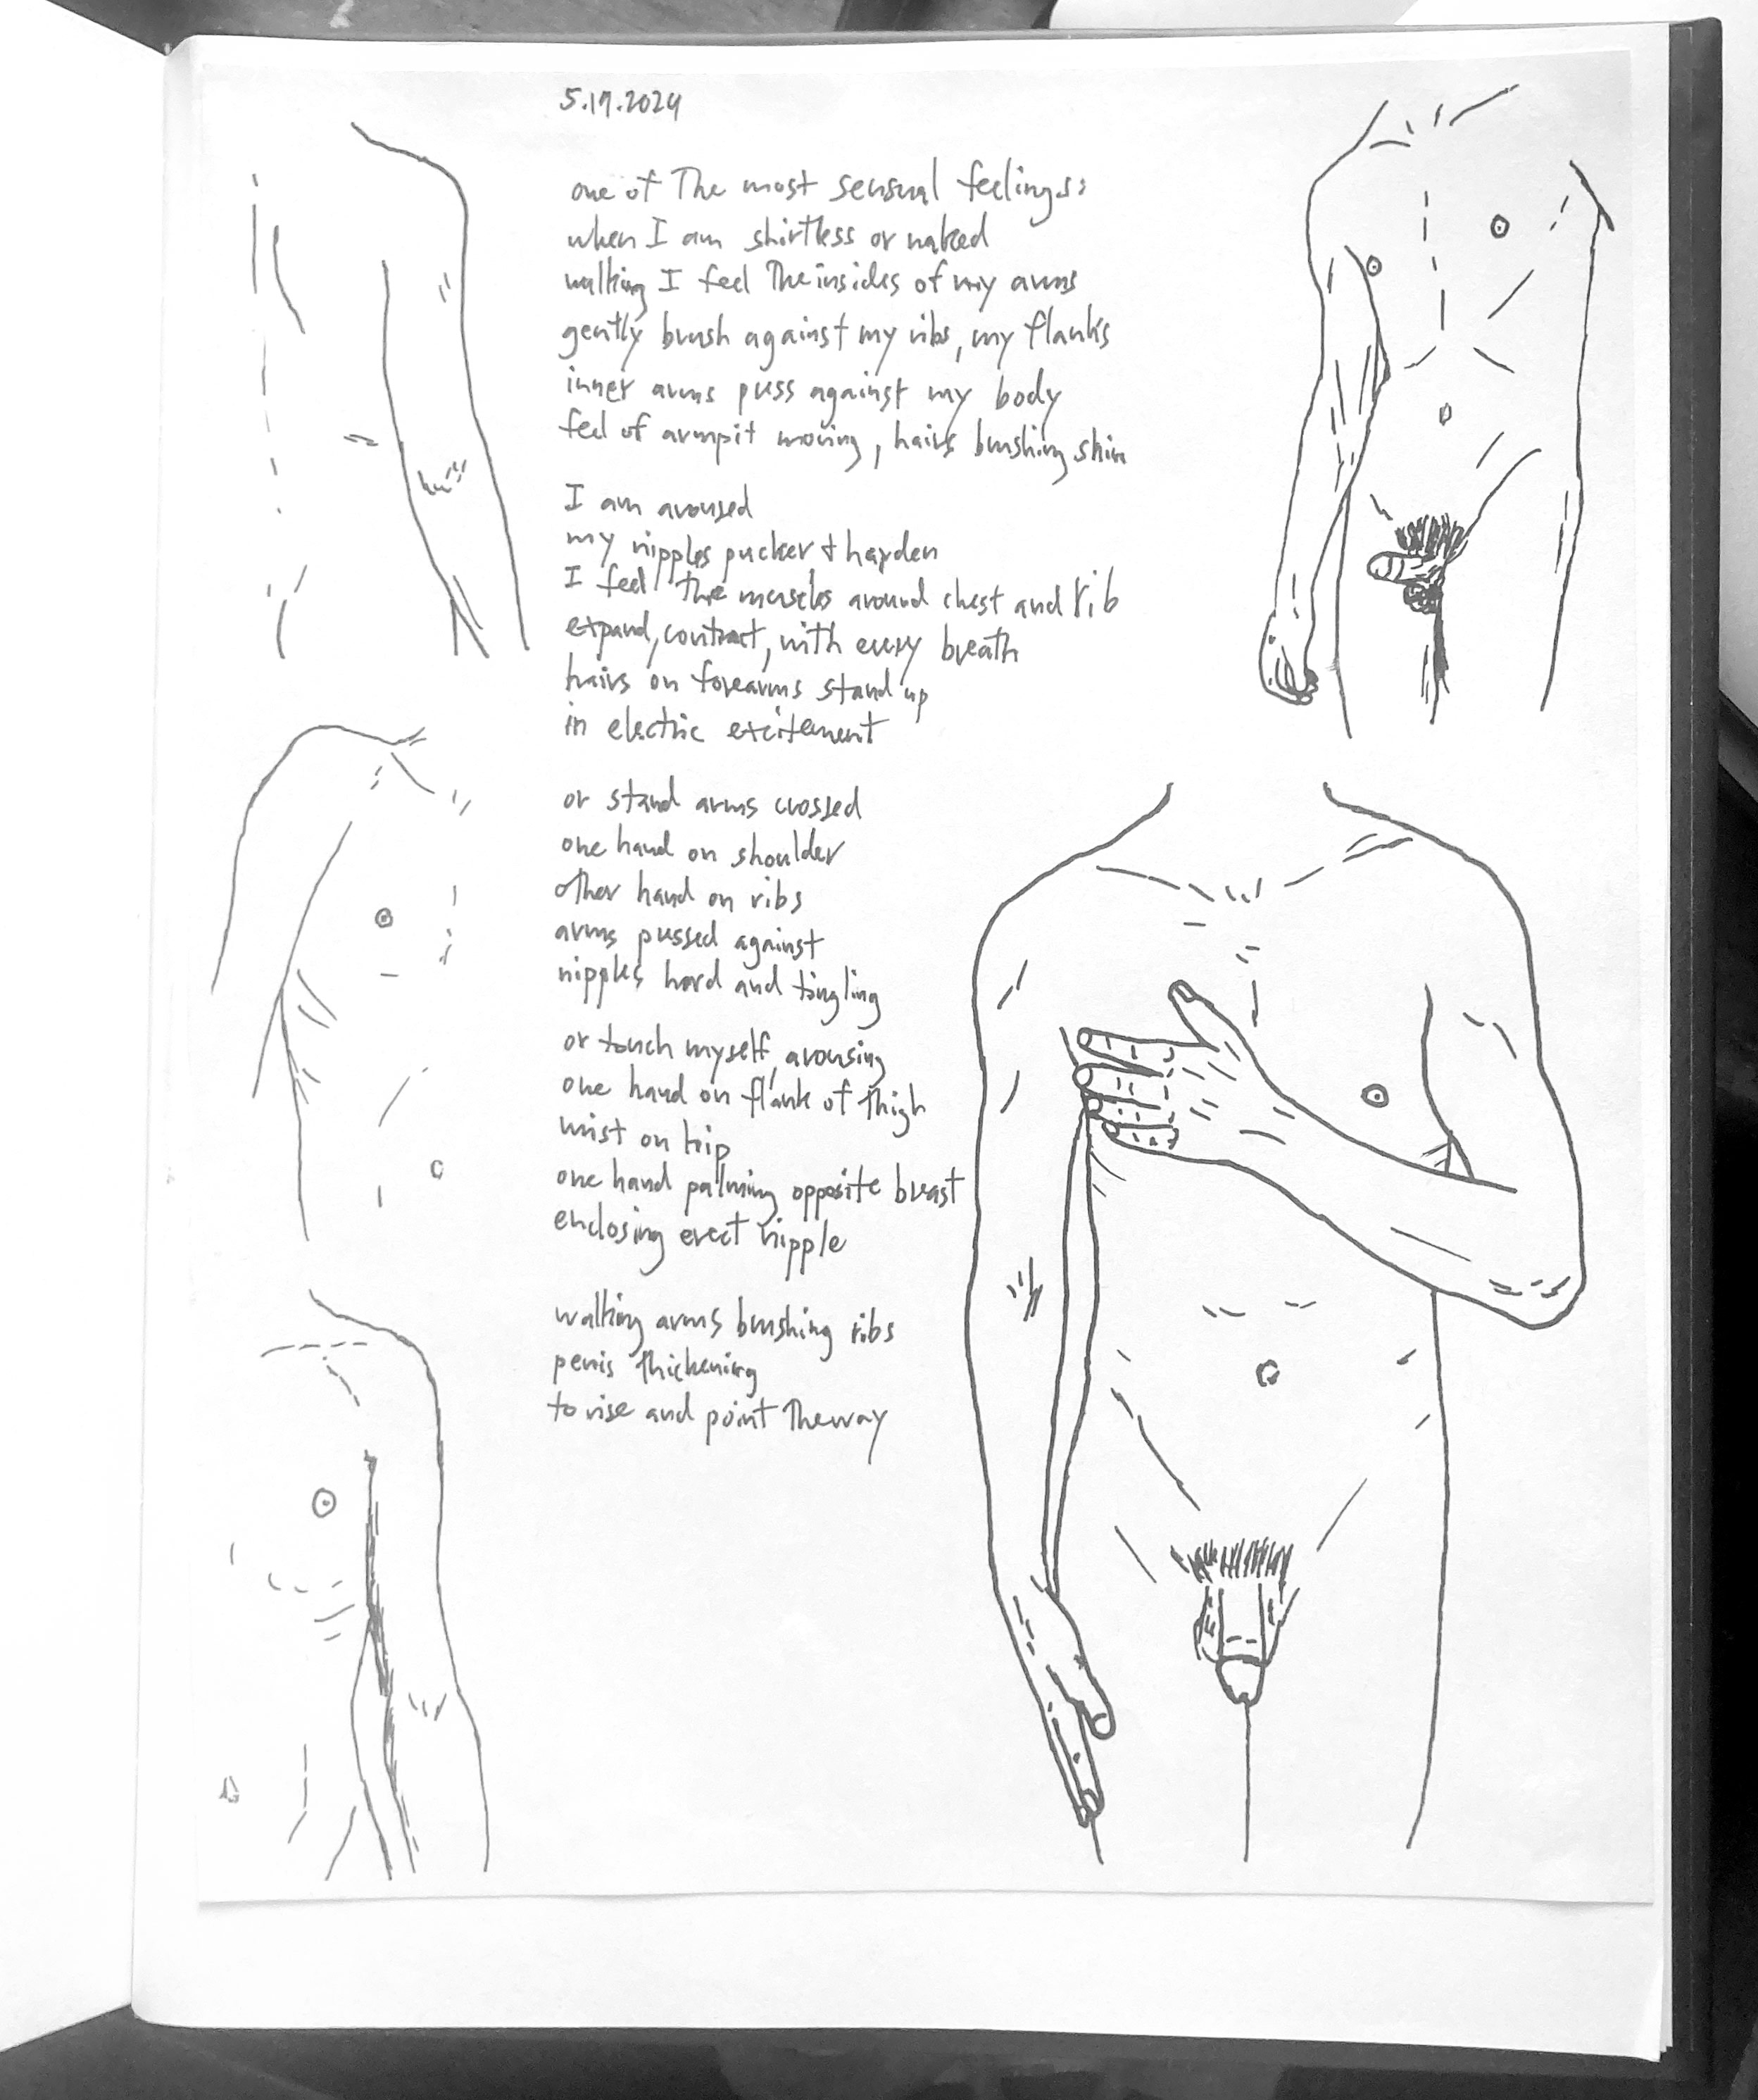 5.17.2024
one of The most sensual feelings:
when I am shirtless or naked
walking I feel The insides of my arms
gently brush against my ribs, my flanks
inner arms press against my body
feel of armpit moving, hairs brushing skin
I am aroused
my nipples pucker & harden
I feel the muscles around chest and rib
expand, contract, with every breath
hairs on forearms stand up
in electric excitement
or stand arms crossed
one hand on shoulder
other hand on ribs
arms pressed against
nipples hard and tingling
or touch myself, arousing
one hand on flank of Thigh
wrist on hip
one hand palming opposite breast
enclosing erect nipple
walking arms brushing ribs
penis Thickening
to rise and point The way